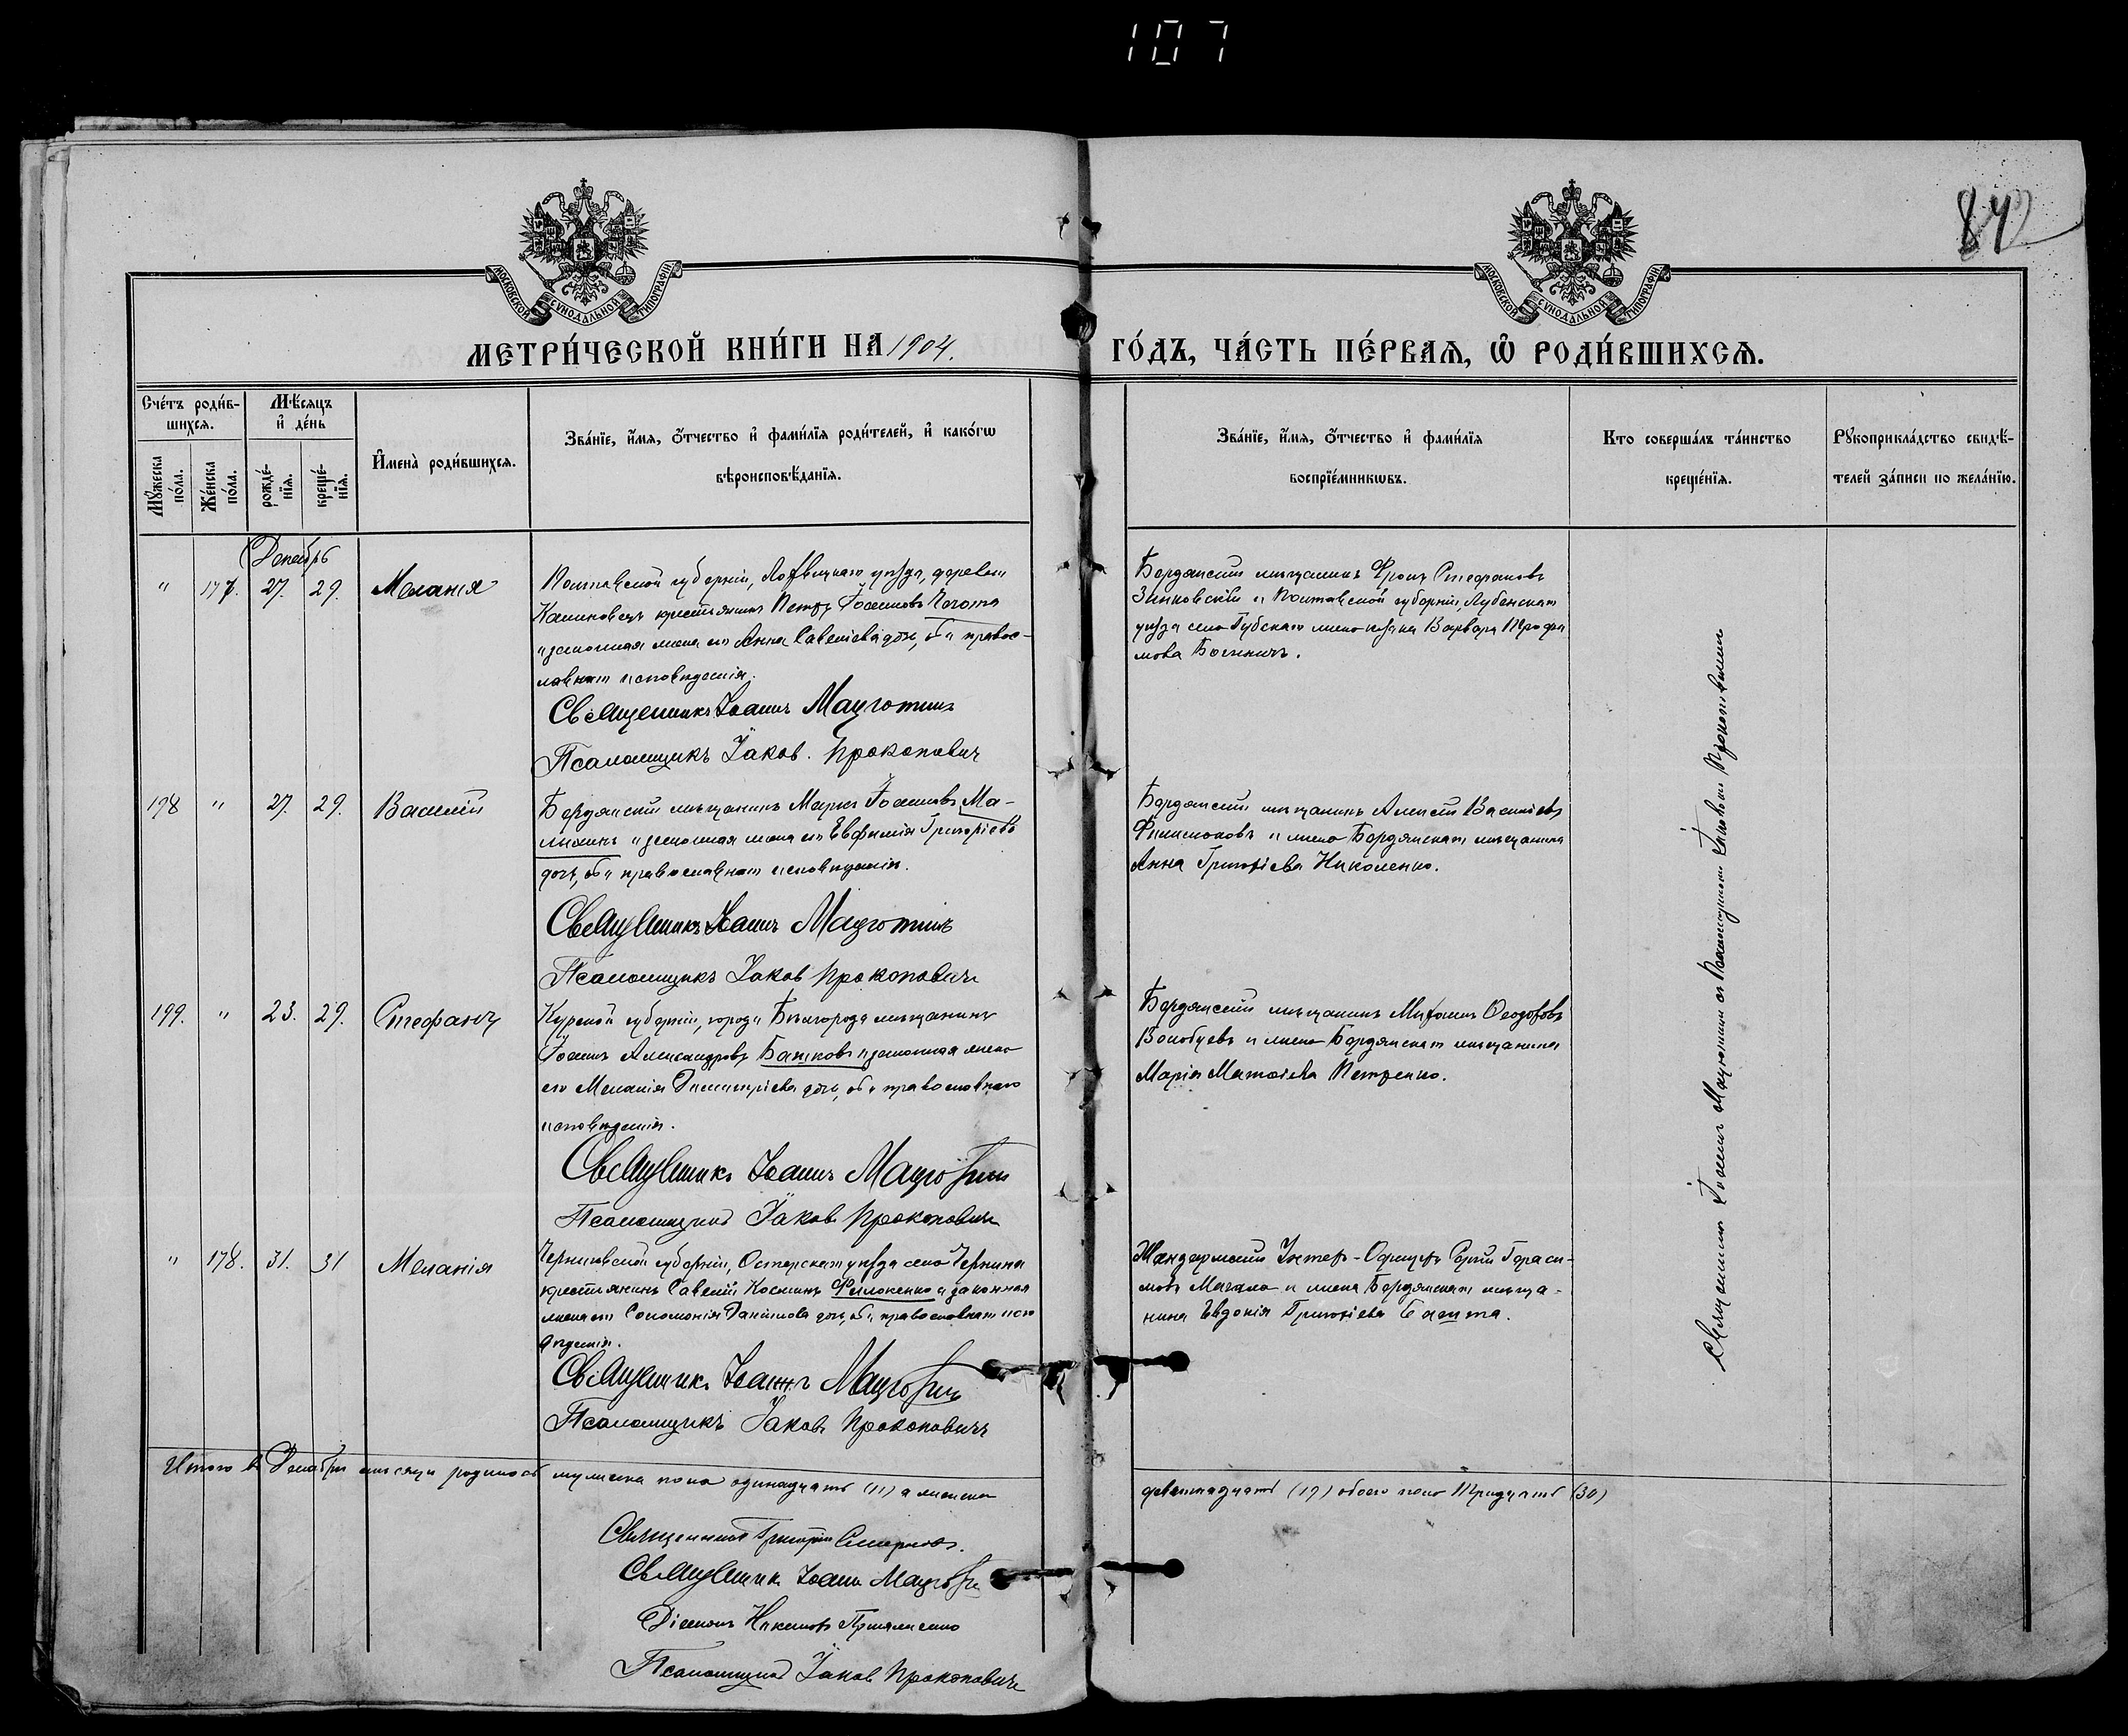 107
84
МОСКОВСКОЙ СѴНОДАЛЬНОЙ ТИПОГРАФІИ
МОСКОВСКОЙ СѴНОДАЛЬНОЙ ТИПОГРАФІИ
МЕТРИ́ЧЕСКОЙ КНИ́ГИ НА 1904. ГО́ДЪ, ЧА́СТЬ ПЕ́РВАѦ, Ѡ҆ РОДИ́ВШИХСѦ.
Сче́тъ роди́в-
шихсѧ.
Мꙋ́жеска по́ла.
Же́нска по́ла.
Мѣ́сѧцъ
и҆ де́нь
рожде́-
нїѧ.
креще́-
нїѧ.
И҆мена̀ роди́вшихсѧ.
Зва́нїе, и҆́мѧ, ѻ҆́тчество и҆ фами́лїѧ роди́телей, и҆ како́гѡ
вѣроисповѣ́данїѧ.
Зва́нїе, и҆́мѧ, ѻ҆́тчество и҆ фами́лїѧ
воспрїе́мникѡвъ.
Кто соверша́лъ та́инство
креще́нїѧ.
Рꙋкоприкла́дство свидѣ́-
телей за́писи по жела́нїю.
Декабрь
" 177. 27. 29. Меланія
Полтавской губерніи, Лохвицкаго уѣзда, деревни
крестьянинъ Петръ Іоанновъ
и законная жена его Анна Савеліева дочь, оба правос-
лавнаго исповѣданія.
Священникъ Іоаннъ
Псаломщикъ Іаковъ Прокоповичъ
Бердянскій мѣщанинъ Стефановъ
Зинковскій и Полтавской губерніи, Лубенскаго
уѣзда села Губскаго жена козака Варвара Трофи
мова
198 " 27. 29. Василій
Бердянскій мѣщанинъ Маркъ Іоанновъ Ма-
лихинъ и законная жена его Евфимія Григоріева
дочь, оба православнаго исповѣданія.
Священникъ Іоаннъ
Псаломщикъ Іаковъ Прокоповичъ
Бердянскій мѣщанинъ Алексій Васильевъ
и жена Бердянскаго мѣщанина
Анна Григоріева Николенко.
199. " 23. 29. Стефанъ
Курской губерніи, города Бѣлгорода мѣщанинъ
Іоаннъ Александровъ Башковъ и законная жена
его Меланія Димитріева дочь, оба православнаго
исповѣданія.
Священникъ Іоаннъ
Псаломщикъ Іаковъ Прокоповичъ
Бердянскій мѣщанинъ Михаилъ Ѳеодоровъ
и жена Бердянскаго мѣщанина
Марія Матѳіева Петренко.
" 178. 31. 31 Меланія
Черниговской губерніи, Остерскаго уѣзда села Чернина
крестьянинъ Савелій Косминъ и законная
жена его Соломонія Даніилова дочь, оба православнаго испо
вѣданія.
Священникъ Іоаннъ
Псаломщикъ Іаковъ Прокоповичъ
Жандармскій Унтер-Офицеръ Сергій Гераси-
мовъ и жена Бердянскаго мѣща-
нина Евдокія Григоріева
Священникъ Іоаннъ съ Псаломщикомъ Іаковомъ Прокоповичемъ
Итого въ Декабрѣ мѣсяцѣ родилось мужеска пола одинадцать (11) а женска
девятнадцать (19) обоего пола Тридцать (30)
Священникъ Григорій Смирновъ.
Священникъ Іоаннъ
Діаконъ
Псаломщикъ Іаковъ Прокоповичъ